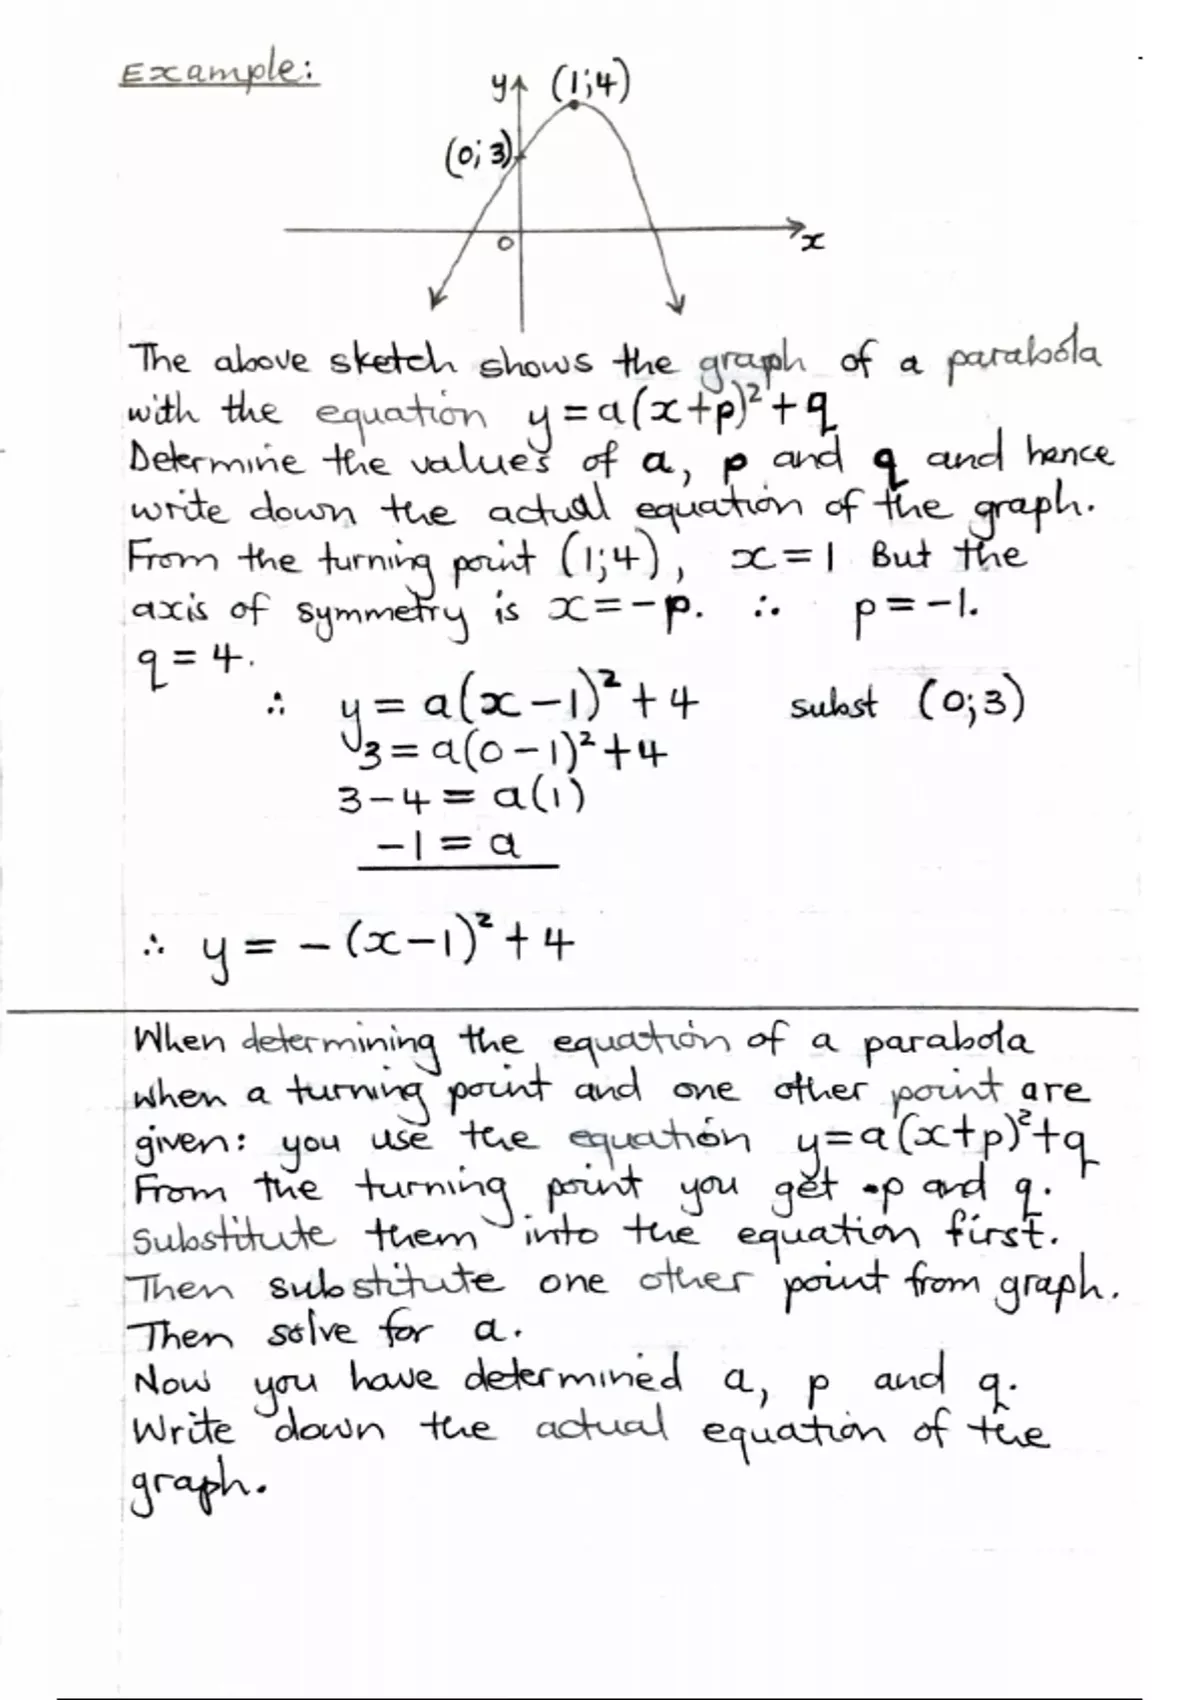 Example:
y (1;4)
(0;3)
0 x
The above sketch shows the graph of a parabola
with the equation y = a(x+p)² + q
Determine the values of a, p and q and hence
write down the actual equation of the graph.
From the turning point (1;4), x = 1 But the
axis of symmetry is x = -p. ∴ p = -1.
q = 4.
∴ y = a(x-1)² + 4 subst (0;3)
3 = a(0-1)² + 4
3-4 = a(1)
-1 = a
∴ y = -(x-1)² + 4
When determining the equation of a parabola
when a turning point and one other point are
given: you use the equation y=a(x+p)²+q
From the turning point you get -p and q.
Substitute them into the equation first.
Then substitute one other point from graph.
Then solve for a.
Now you have determined a, p and q.
Write down the actual equation of the
graph.